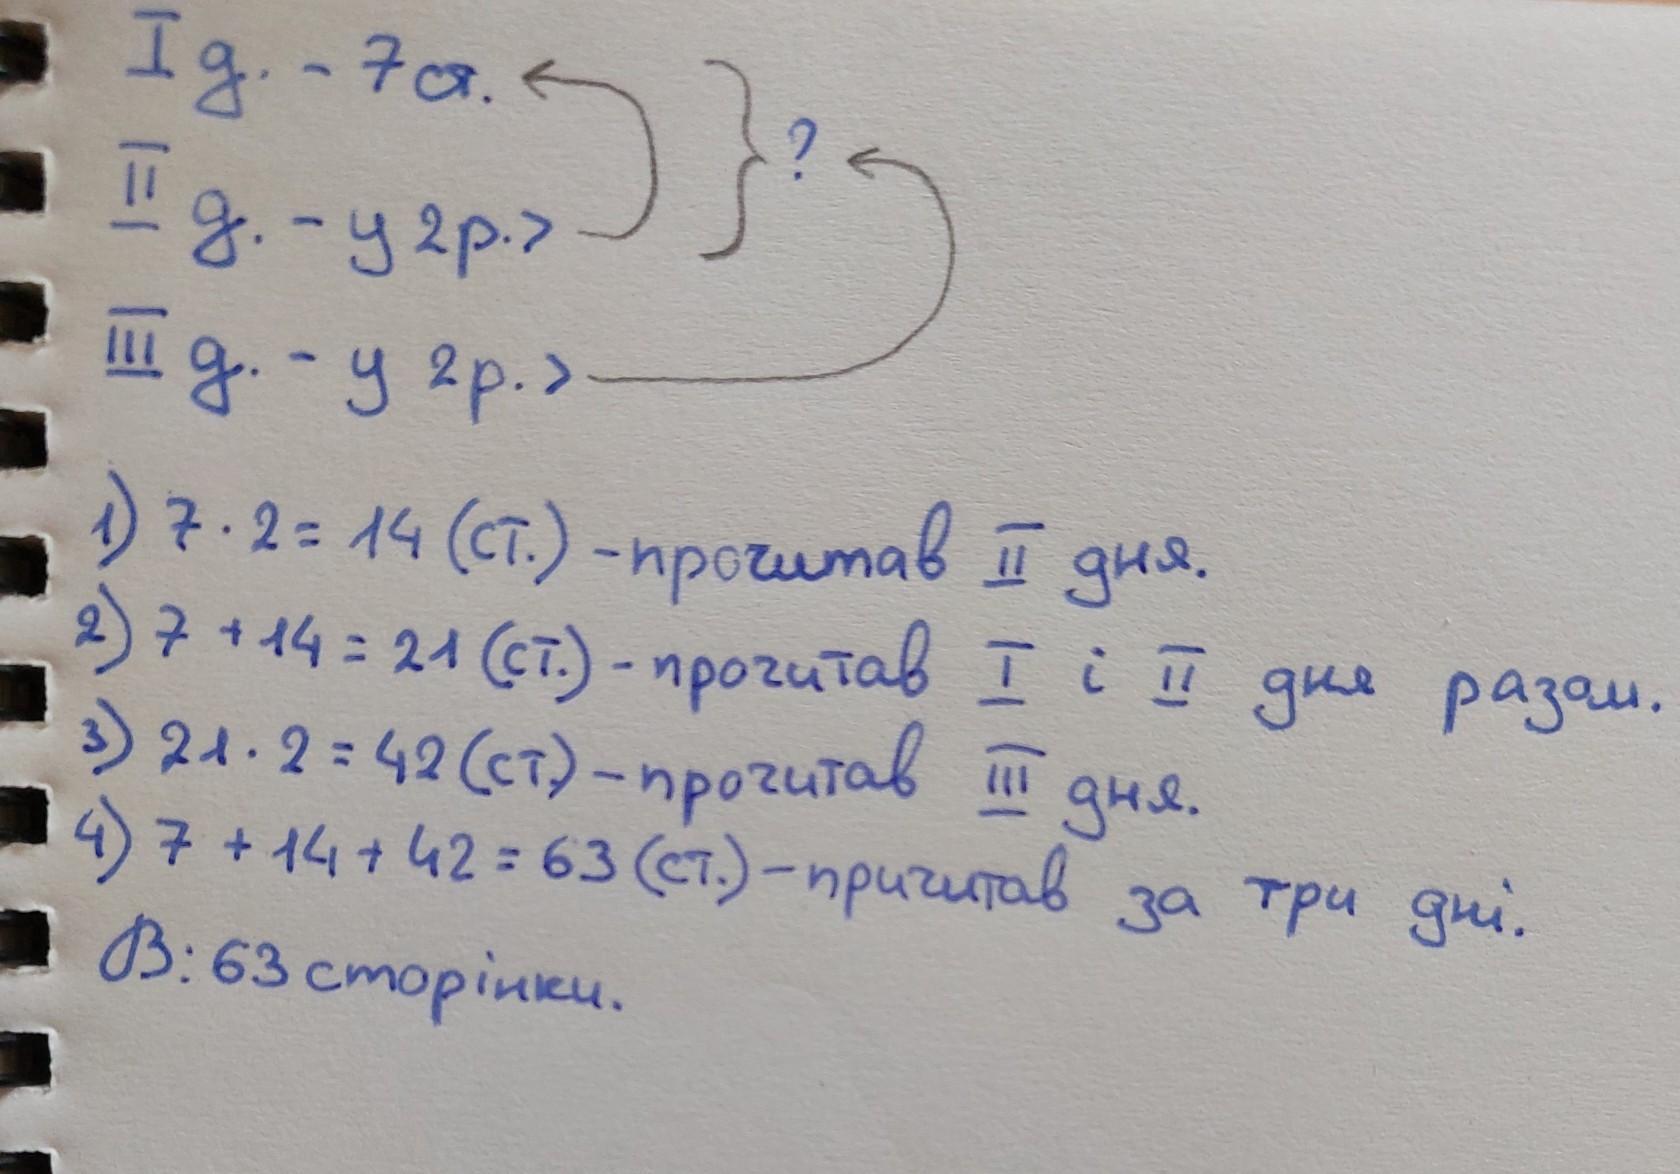 I д. - 7 ст.
?
II д. - у 2 р. >
III д. - у 2 р. >
1) 7 · 2 = 14 (ст.) - прочитав II дня.
2) 7 + 14 = 21 (ст.) - прочитав I і II дня разом.
3) 21 · 2 = 42 (ст.) - прочитав III дня.
4) 7 + 14 + 42 = 63 (ст.) - причитав за три дні.
В: 63 сторінки.